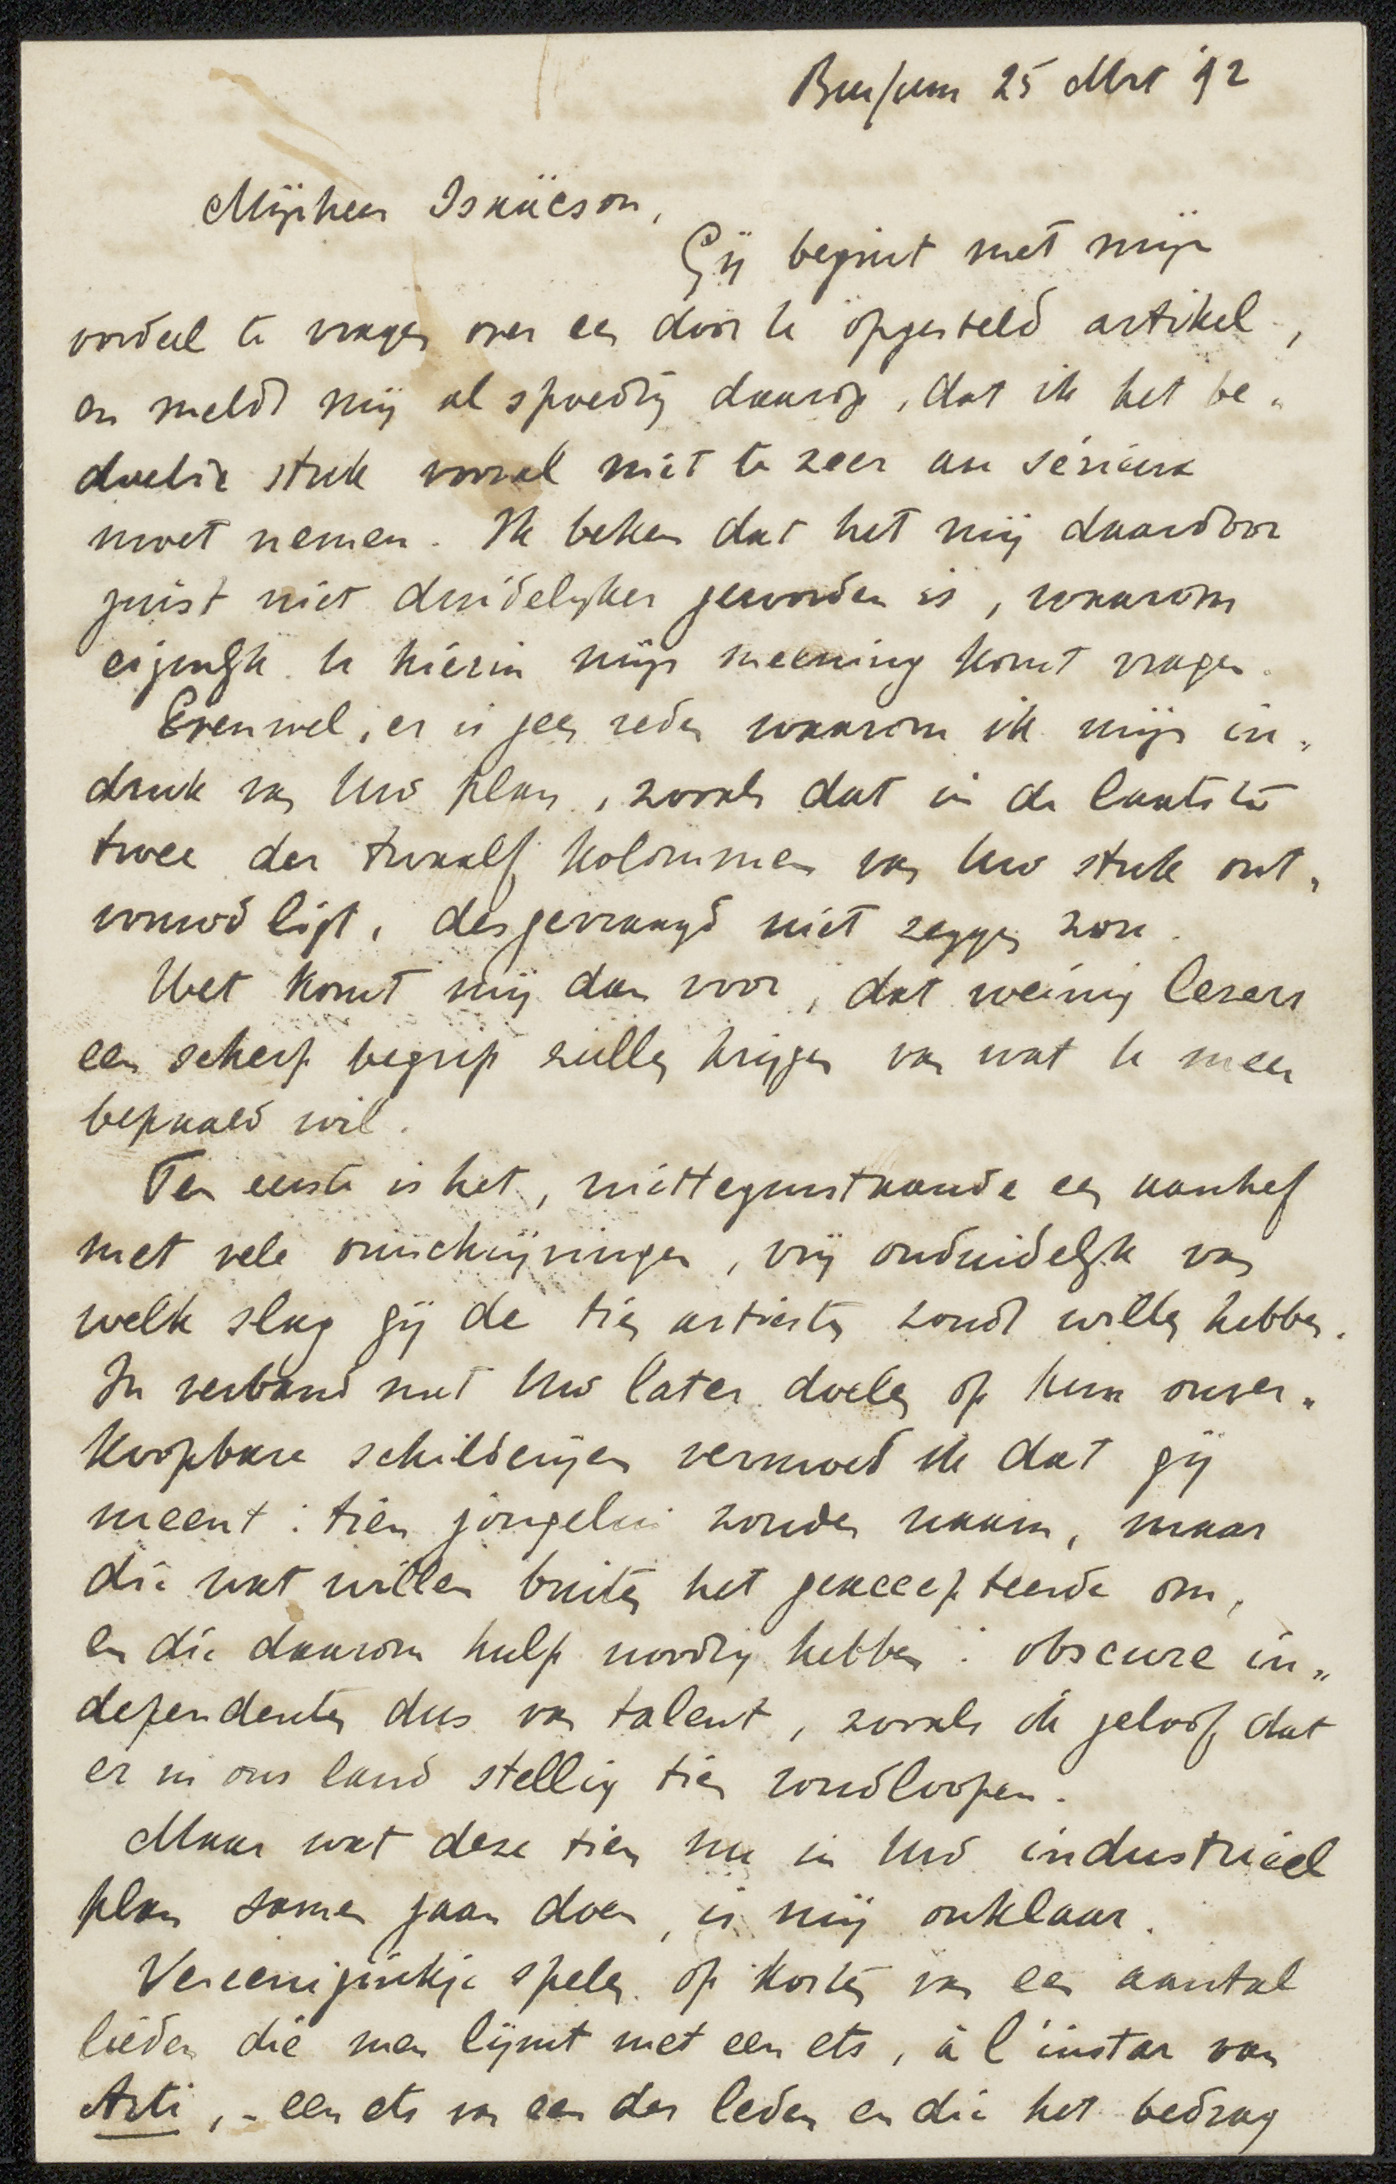 Bussum 25 Mrt '92
Mijnheer Isaäcson,
Gij begint met mijn
oordeel te vragen over een door U opgesteld artikel,
en meldt mij al spoedig daarop, dat ik het be„
doelde stuk vooral niet te zeer au sérieux
moet nemen. Ik beken dat het mij daardoor
juist niet duidelijker geworden is, waarom
eigenlijk U hierin mijn meening komt vragen.
Evenwel, er is geen reden waarom ik mijn in„
druk van Uw plan, zooals dat in de laatste
twee der twaalf kolommen van Uw stuk ont„
vouwd ligt, desgevraagd niet zeggen zou.
Het komt mij dan voor, dat weinig lezers
een scherp begrip zullen krijgen van wat U meer
bepaald wil.
Ten eerste is het, niettegenstaande een aanhef
met vele omschrijvingen, vrij onduidelijk van
welk slag gij de tien artiesten zoudt willen hebben.
In verband met Uw later doelen op hun onver„
koopbare schilderijen vermoed ik dat gij
meent: tien jongelui zonder naam, maar
die wat willen buiten het geaccepteerde om,
en die daarom hulp noodig hebben: obscure in„
dependenten dus van talent, zooals ik geloof dat
er in ons land stellig tien rondloopen.
Maar wat deze tien nu in Uw industrieel
plan samen gaan doen, is mij onklaar.
Vereeniginkje spelen op kosten van een aantal
lieden die men lijmt met een ets, à l'instar van
Arti, – een ets van een der leden en die het bedrag